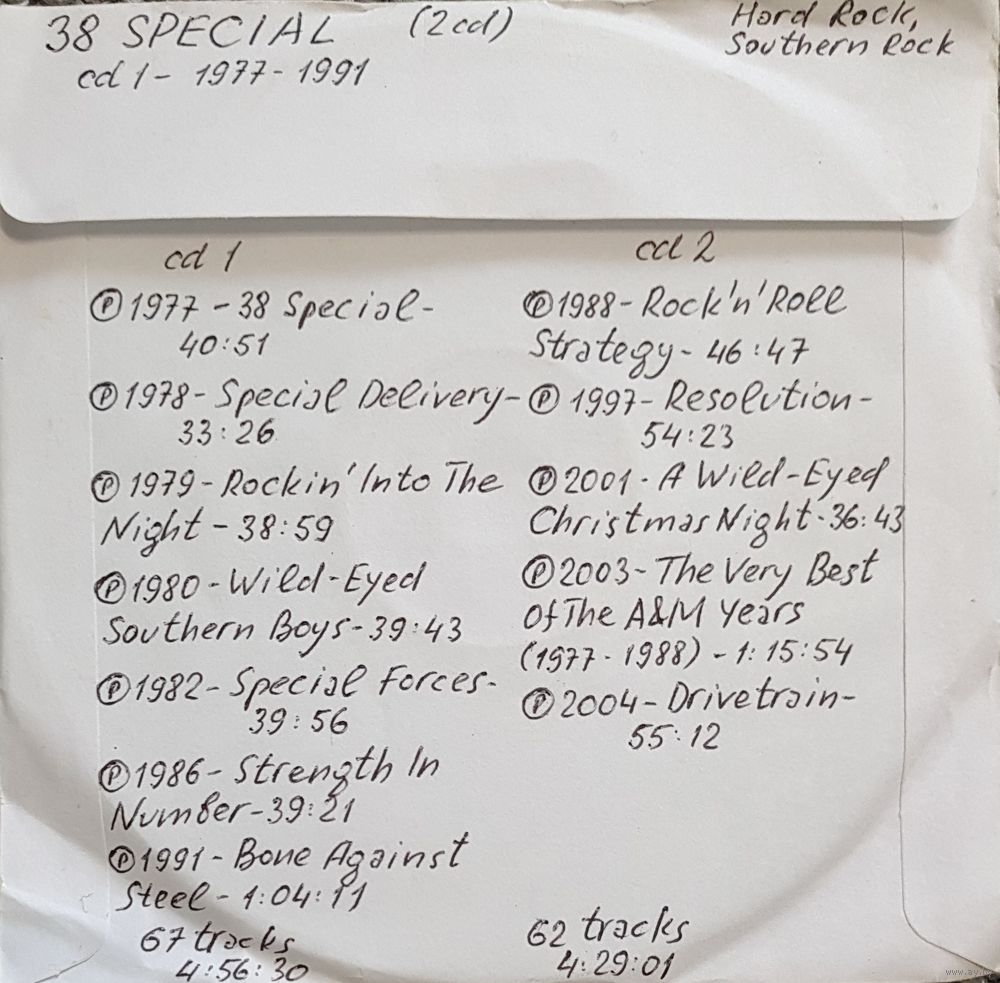 38 SPECIAL (2cd)
Hard Rock,
Southern Rock
cd 1 - 1977-1991
cd 1
Ⓟ1977 - 38 Special -
40:51
Ⓟ1978 - Special Delivery -
33:26
Ⓟ1979 - Rockin' Into The
Night - 38:59
Ⓟ1980 - Wild-Eyed
Southern Boys - 39:43
Ⓟ1982 - Special Forces -
39:56
Ⓟ1986 - Strength In
Number - 39:21
Ⓟ1991 - Bone Against
Steel - 1:04:11
67 tracks
4:56:30
cd 2
Ⓟ1988 - Rock'n'Roll
Strategy - 46:47
Ⓟ1997 - Resolution -
54:23
Ⓟ2001 - A Wild-Eyed
Christmas Night - 36:43
Ⓟ2003 - The Very Best
Of The A&M Years
(1977 - 1988) - 1:15:54
Ⓟ2004 - Drivetrain -
55:12
62 tracks
4:29:01